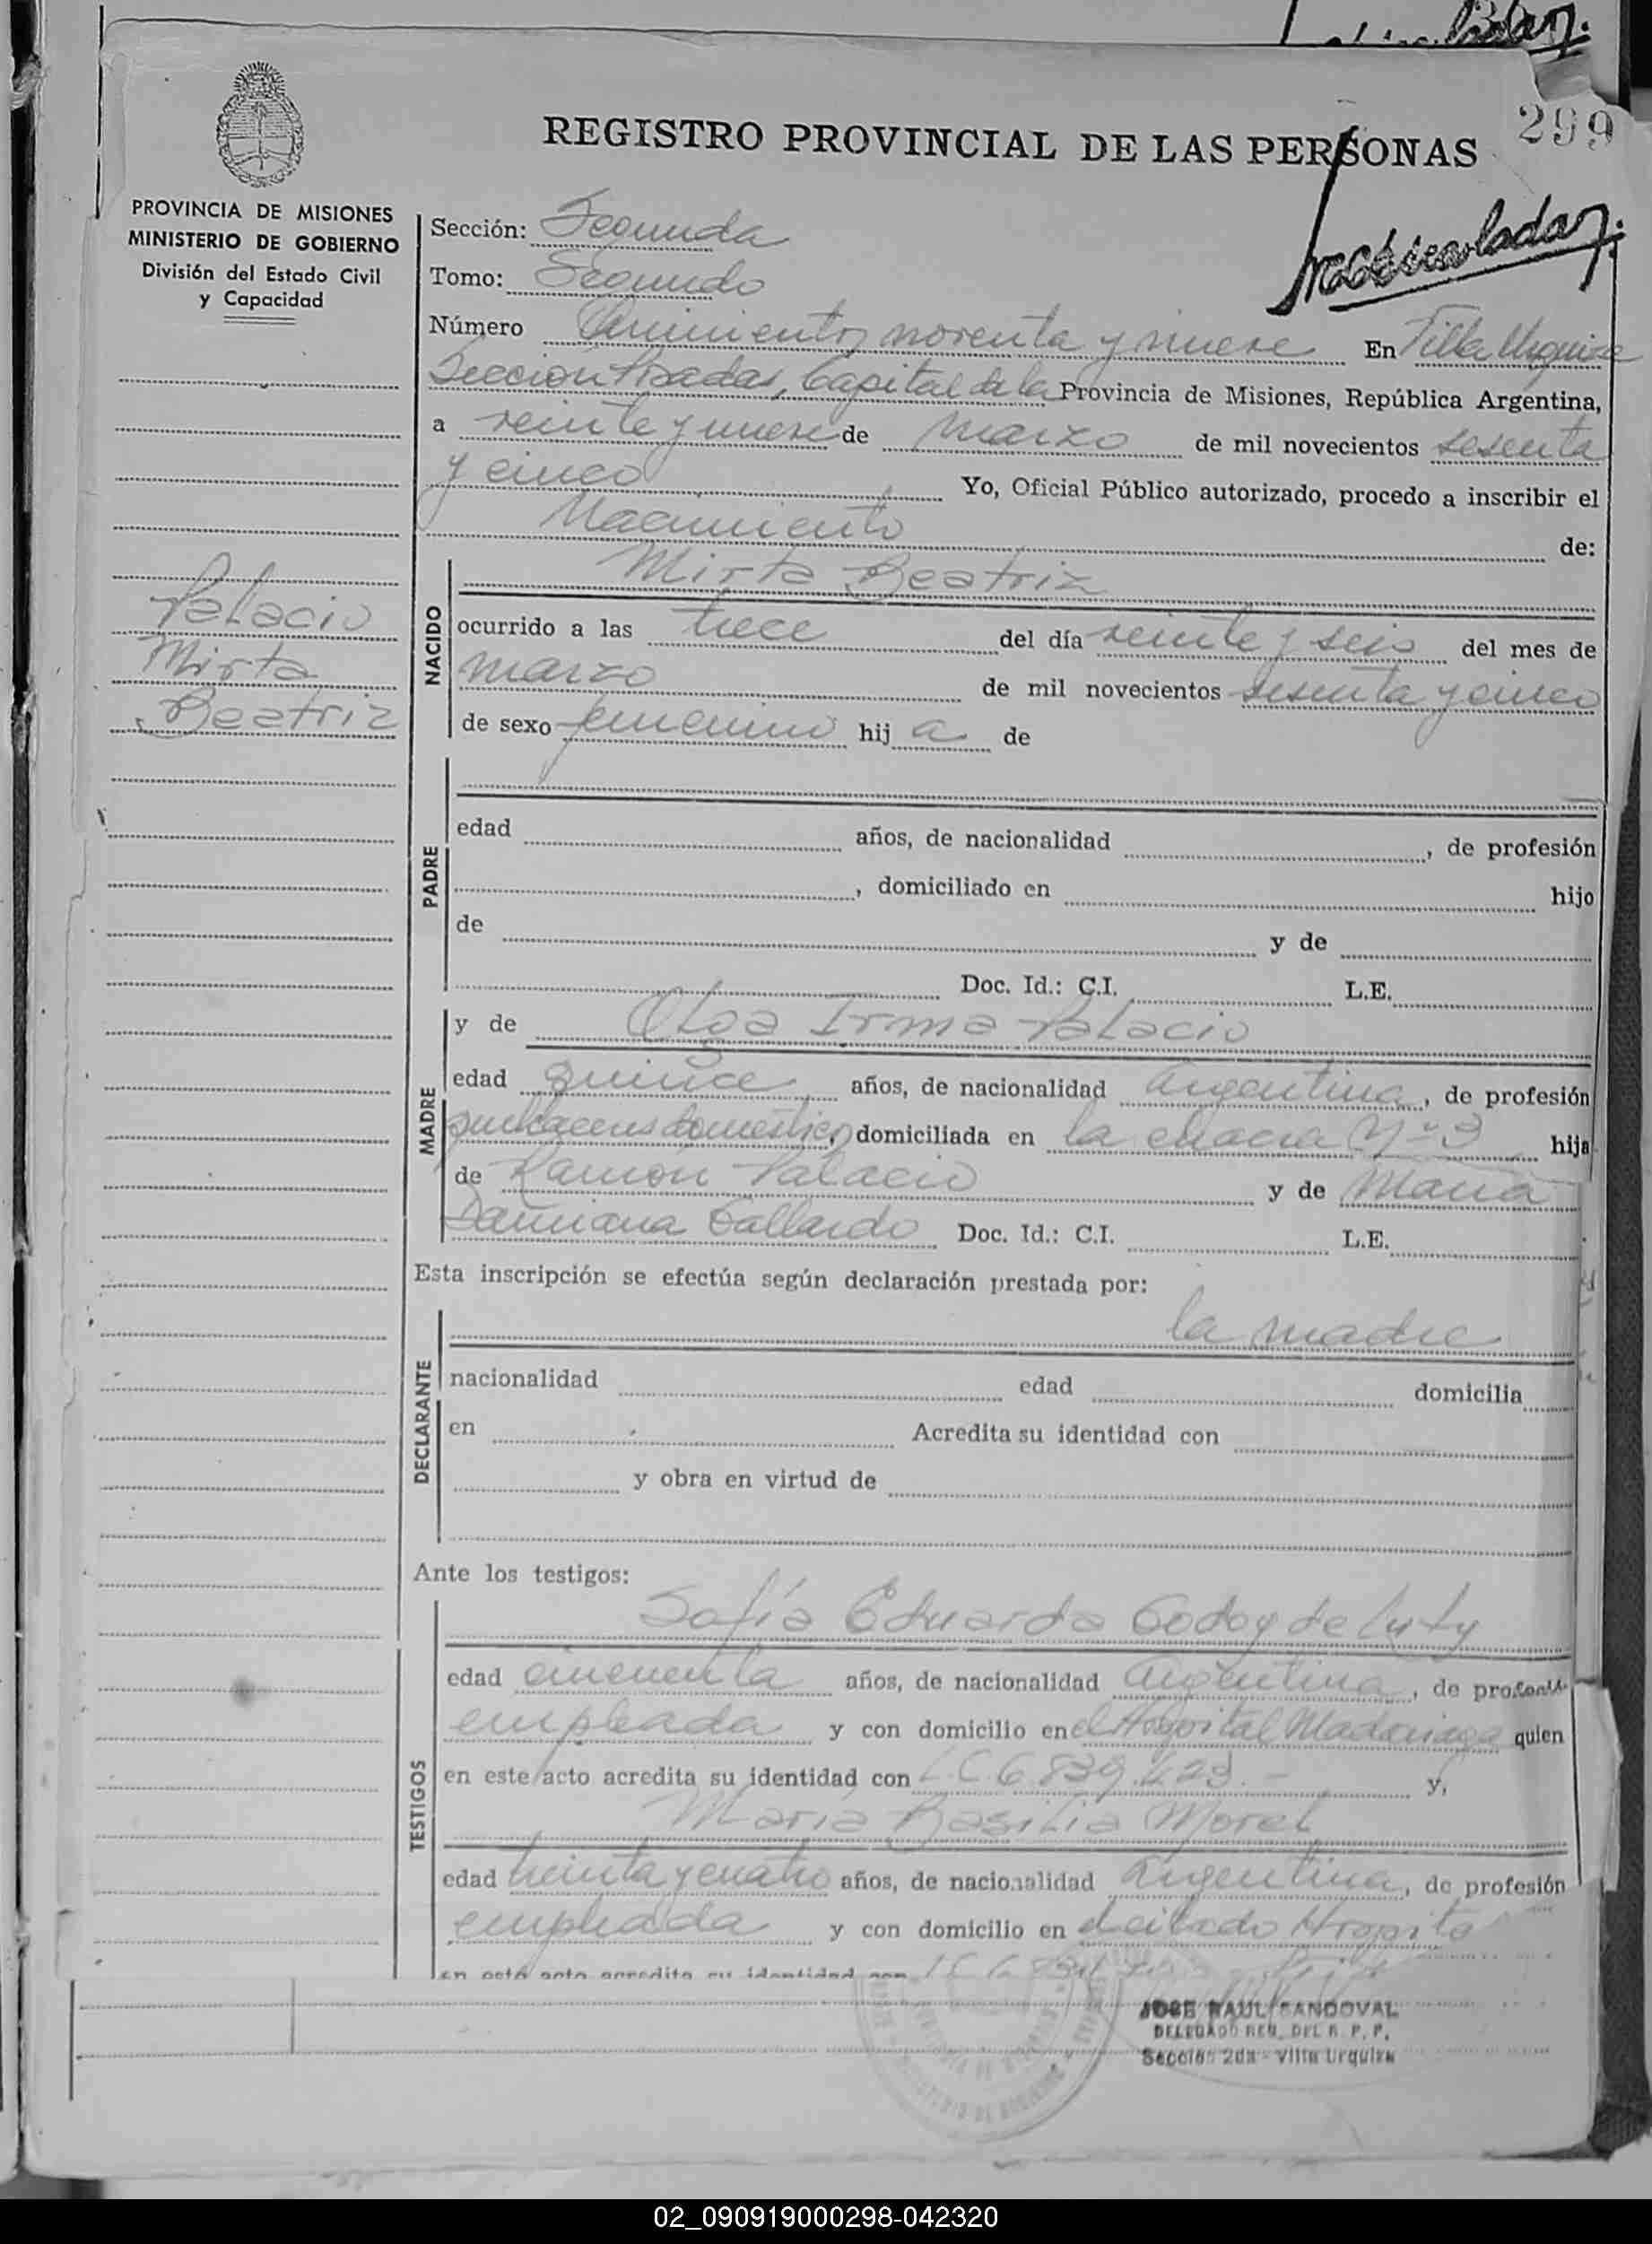 299
REGISTRO PROVINCIAL DE LAS PERSONAS
PROVINCIA DE MISIONES
MINISTERIO DE GOBIERNO
División del Estado Civil
y Capacidad
Sección: Segunda
Tomo: Segundo
Número noventa y nueve En Villa Urquiza
Sección Posadas, Capital de la Provincia de Misiones, República Argentina,
a veinte y nueve de marzo de mil novecientos sesenta
y cinco Yo, Oficial Público autorizado, procedo a inscribir el
Nacimiento de:
Palacio
Mirta
Beatriz
NACIDO
Mirta Beatriz
ocurrido a las trece del día veinte y seis del mes de
marzo de mil novecientos sesenta y cinco
de sexo femenino hij a de
PADRE
edad años, de nacionalidad , de profesión
, domiciliado en hijo
de y de
Doc. Id.: C.I. L.E.
MADRE
y de Olga Irma Palacio
edad quince años, de nacionalidad Argentina, de profesión
quehaceres domésticos, domiciliada en la chacra Nº 3 hija
de Ramón Palacio y de María
Damiana Gallardo Doc. Id.: C.I. L.E.
Esta inscripción se efectúa según declaración prestada por:
DECLARANTE
la madre
nacionalidad edad domicilia
en Acredita su identidad con
y obra en virtud de
Ante los testigos:
TESTIGOS
Sofía Eduarda Godoy de
edad cincuenta años, de nacionalidad Argentina, de
empleada y con domicilio en el Hospital Madariaga quien
en este acto acredita su identidad con L.C. 6.839.423.- y,
María Basilia Morel
edad treinta y cuatro años, de nacionalidad Argentina, de profesión
empleada y con domicilio en el citado Hospital
en este acto acredita su identidad con
JOSE RAUL SANDOVAL
DELEGADO REG. DEL R. P. P.
Sección 2da - Villa Urquiza
02_090919000298-042320